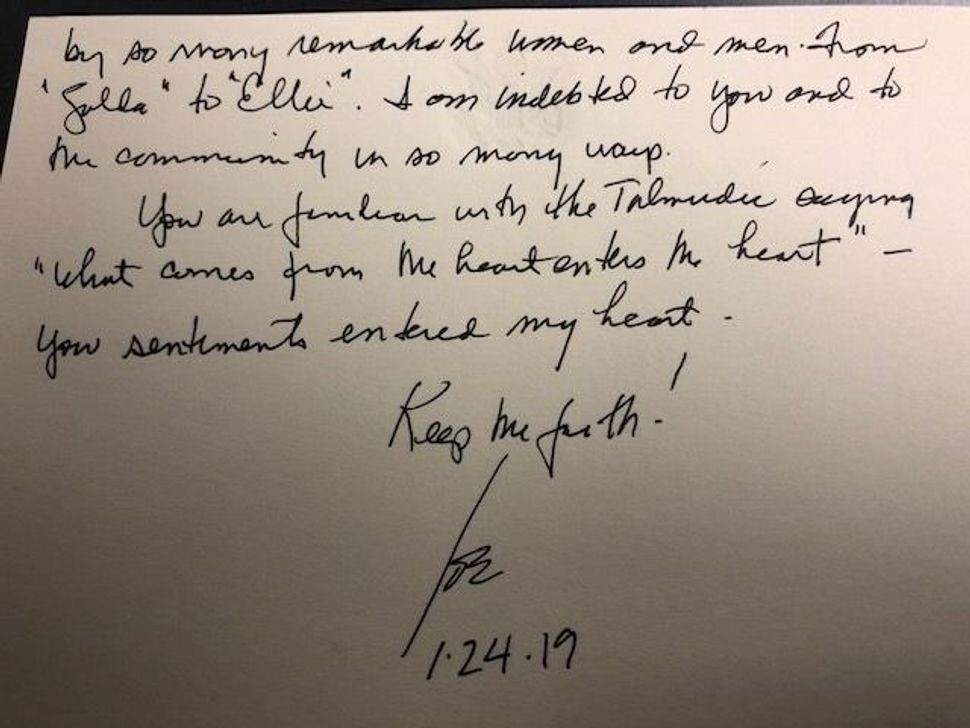 by so many remarkable women and men - from
"Golda" to "Ellie". I am indebted to you and to
the community in so many ways.
You are familiar with the Talmudic saying
"what comes from the heart enters the heart" -
your sentiments entered my heart -
Keep the faith!
Joe
1.24.19